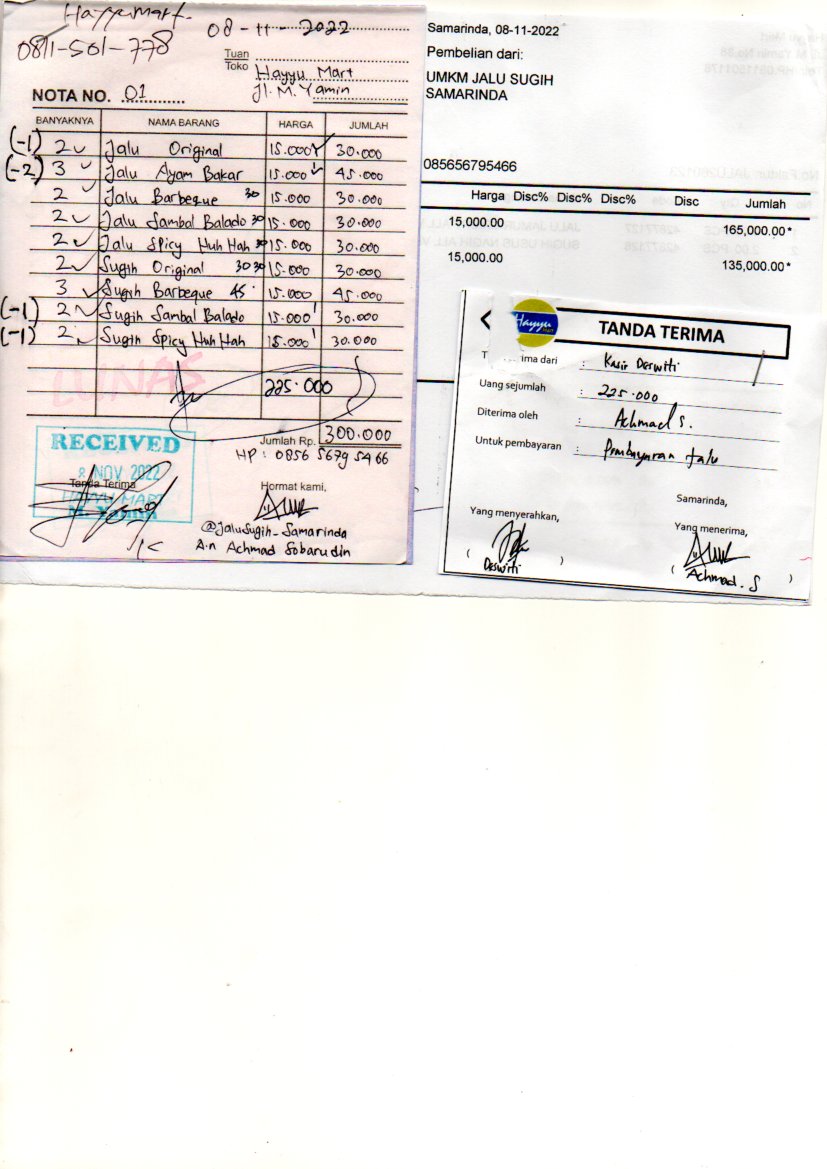 Hayyumart.
0811-501-778
08-11-2022
Tuan
Toko
Hayyu Mart
Jl. M. Yamin
NOTA NO. 01
BANYAKNYA NAMA BARANG HARGA JUMLAH
(-1) 2 Jalu Original 15.000 30.000
(-2) 3 Jalu Ayam Bakar 15.000 45.000
2 Jalu Barbeque 30 15.000 30.000
2 Jalu Sambal Balado 30 15.000 30.000
2 Jalu Spicy Huh Hah 30 15.000 30.000
2 Sugih Original 30 30 15.000 30.000
3 Sugih Barbeque 45 15.000 45.000
(-1) 2 Sugih Sambal Balado 15.000 30.000
(-1) 2 Sugih Spicy Huh Hah 15.000 30.000
LUNAS
225.000
Jumlah Rp. 300.000
HP : 0856 5679 5466
RECEIVED
8 NOV 2022
HAYYU MART
M. Yamin
Tanda Terima
Hormat kami,
@JaluSugih_Samarinda
A.n Achmad Sobarudin
Samarinda, 08-11-2022
Pembelian dari:
UMKM JALU SUGIH
SAMARINDA
085656795466
Harga Disc% Disc% Disc% Disc Jumlah
15,000.00 165,000.00*
15,000.00 135,000.00*
Hayyu
TANDA TERIMA
ima dari : Kasir Deswiti
Uang sejumlah : 225.000
Diterima oleh : Achmad S.
Untuk pembayaran : Pembayaran Jalu
Samarinda,
Yang menyerahkan,
Yang menerima,
( Deswiti )
( Achmad. S )